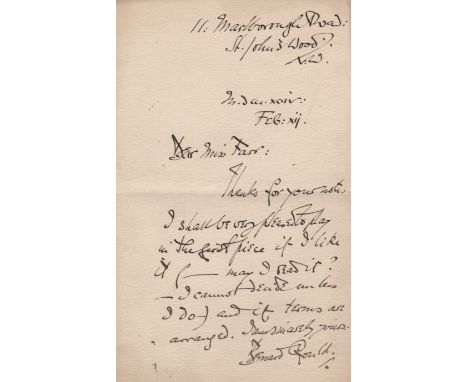 11: Marlborough Road:
St. John's Wood.
N.W.
M.dccc.xciv:
Feb: xij.
Dear Miss Farr:
Thanks for your note:
I shall be very pleased to play
in the first piece if I like
it (— may I read it?
— I cannot decide unless
I do —) and if terms are
arranged. I am sincerely yours.
Bernard Gould.